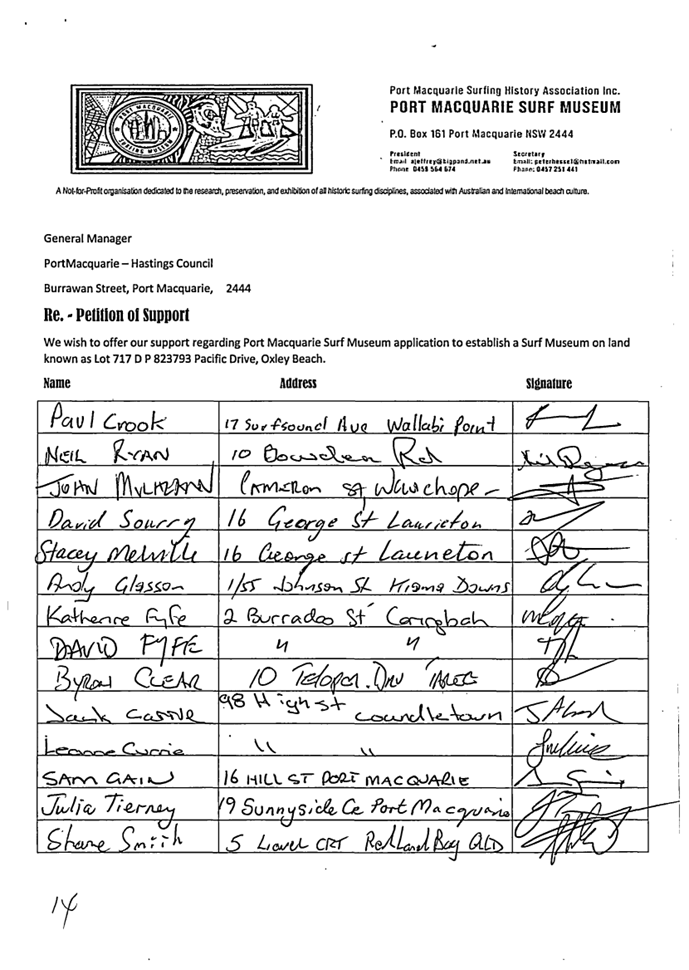 PORT MACQUARIE
SURFING MUSEUM
Port Macquarie Surfing History Association Inc.
PORT MACQUARIE SURF MUSEUM
P.O. Box 161 Port Macquarie NSW 2444
President Secretary
Email ajeffrey@bigpond.net.au Email: peterhessel@hotmail.com
Phone 0458 564 674 Phone: 0457 251 441
A Not-for-Profit organisation dedicated to the research, preservation, and exhibition of all historic surfing disciplines, associated with Australian and International beach culture.
General Manager
PortMacquarie – Hastings Council
Burrawan Street, Port Macquarie, 2444
Re. - Petition of Support
We wish to offer our support regarding Port Macquarie Surf Museum application to establish a Surf Museum on land
known as Lot 717 D P 823793 Pacific Drive, Oxley Beach.
Name Address Signature
Paul Crook 17 Surfsound Ave Wallabi Point
NEIL RYAN 10 Bowden Rd
JOHN CAMERON St Wauchope
David 16 George St Laurieton
Stacey Melville 16 George St Laurieton
Andy Glasson 1/55 Johnson St Kiama Downs
Katherine Fyfe 2 Burradoo St Caringbah
DAVID FYFE " "
BYRON CLEAR 10
98 High st coundletown
Leanne Currie " "
SAM GAIN 16 HILL ST PORT MACQUARIE
Julia Tierney 19 Sunnyside Ce Port Macquarie
Shane Smith 5 CRT Redland Bay QLD
14